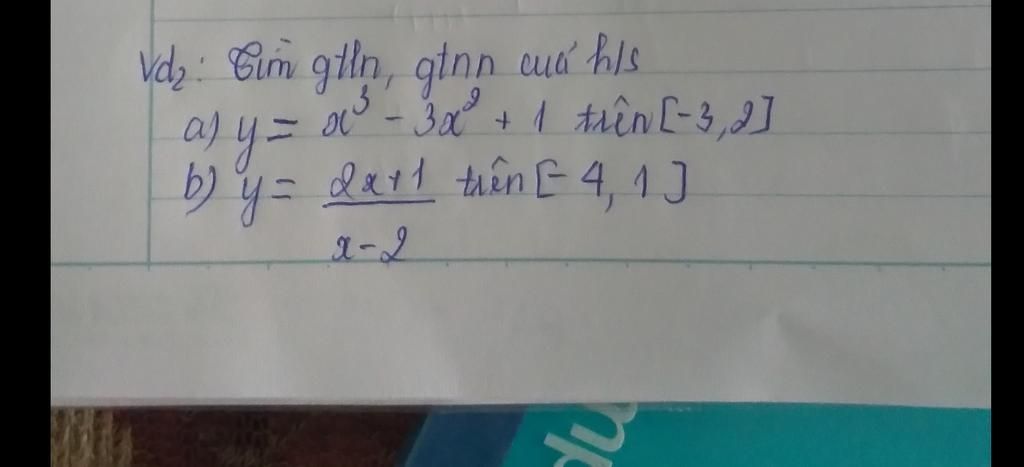 Vd₂: Tìm gtln, gtnn cuả h/s
a) y = x³ - 3x² + 1 trên [-3, 2]
b) y = \frac{2x+1}{x-2} trên [-4, 1]
du